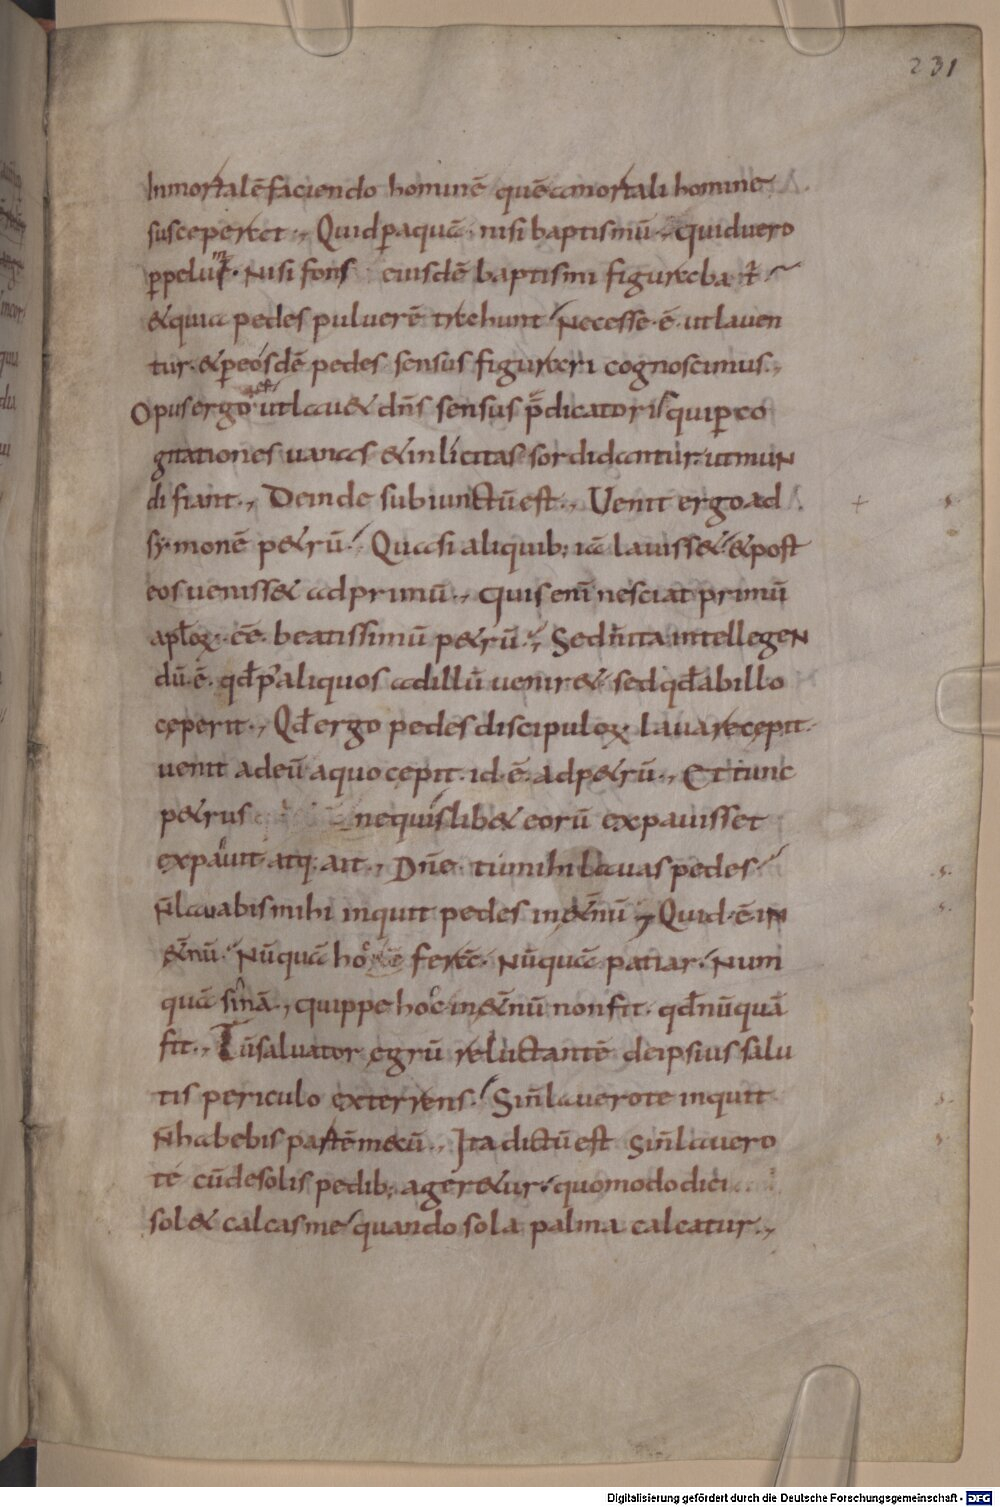 231
Inmortalē faciendo hominē quē a mortali homine
susceperat., Quid p̄ aquā nisi baptismū., quid uero
p̄ peluī. Nisi fons eiusdē baptismi figurabat̄
& quia pedes puluerē trahunt Necesse ē. ut lauen
tur. & p̄ eosdē pedes sensus figurari cognoscimus.,
Opus ergo ut lau& dn̄s sensus p̄dicatoris qui p̄ co
gitationes uanas & inlicitas sordidantur. ut mun
di fiant., Deinde subiunctū est., Uenit ergo ad
sy·monē p&rū. Quasi aliquib; iā lauiss&. & post
eos ueniss& ad primū., quis enī nesciat primū
apl̄oꝝ. eē. beatissimū p&rū., Sed n̄ ita intellegen
dū. ē. qd̄ p̄ aliquos ad illū uenir&. sed qd̄ ab illo
ceperit., Qd̄ ergo pedes discipuloꝝ lauare cepit.
uenit ad eū a quo cepit. id. ē. ad p&rū., Et tunc
p&rus nequis lib& eorū expauisset
expauit. atq; ait., Dn̄e. tu mihi lauas pedes
N̄ lauabis mihi inquit pedes in &̄nū., Quid. ē. in
&̄nū. Nūquā hoc ferā. Nūquā patiar. Num
quā sinā., quippe hoc in &̄nū non fit. qd̄ nūquā
fit., Tū saluator egrū reluctantē de ipsius salu
tis periculo exterrens. Si n̄ lauero te inquit
N̄ habebis partē mecū., Ita dictū est Si n̄ lauero
te cū de solis pedib; ager&ur. quomodo dici
sol& calcas me quando sola palma calcatur.,
Digitalisierung gefördert durch die Deutsche Forschungsgemeinschaft - DFG